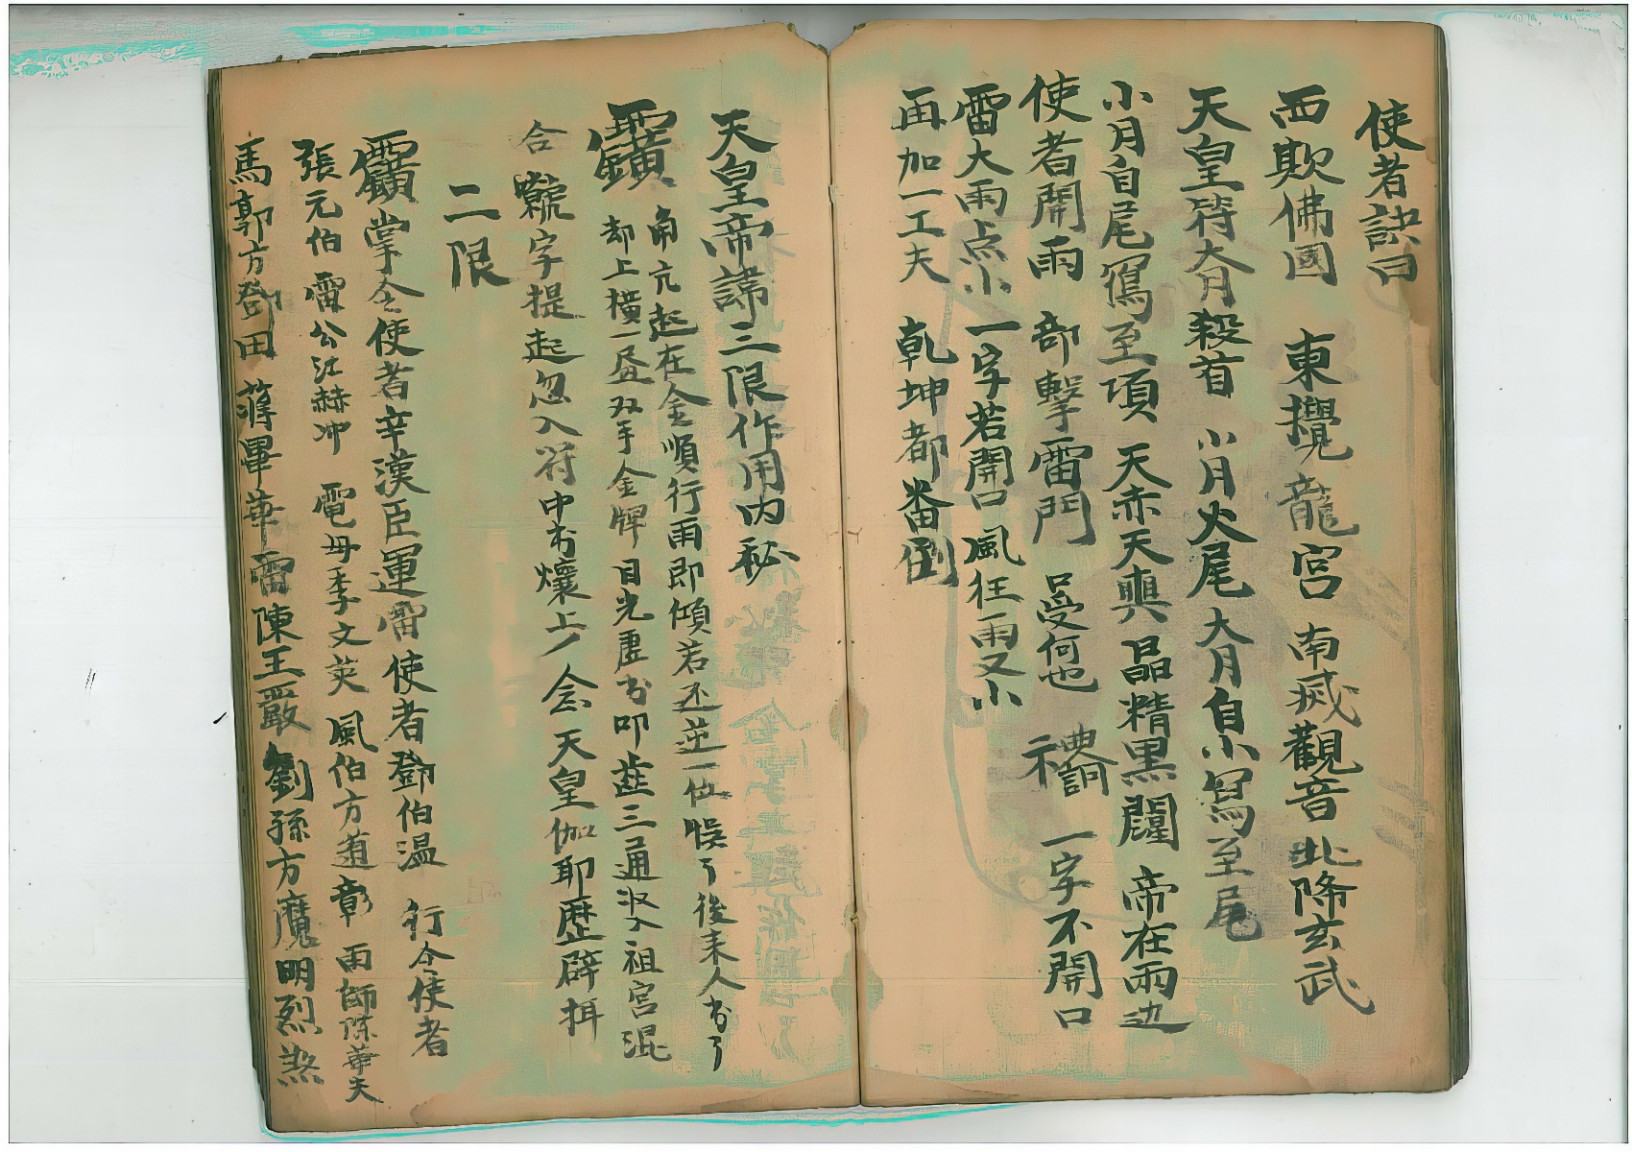 使者訣曰
西欺佛國 東攪龍宮 南滅觀音 北降玄武
天皇符大月殺首 小月火尾 大月自小寫至尾
小月自尾寫至項 天赤天輿 晶精黑 帝在雨边
使者開雨 部擊雷門 受何也 一字不開口
雷大雨点小 一字若開口 風狂雨又小
再加一工夫 乾坤都番倒
天皇帝諱三限作用内秘
角亢起在金順行雨即傾若还逆一位悮了後来人书了
却上橫一 双手金牌 目光虚书叩齿三通 祖宮混
合 字提起忽入符中书 上 念天皇伽耶歷辟揖
二限
掌令使者辛漢臣運雷使者鄧伯温 行令使者
張元伯 雷公江赫冲 電母李文英 風伯方道彰 雨師陈華夫
馬郭方鄧田 蒋畢華雷陳王嚴劉孫方魔明烈煞